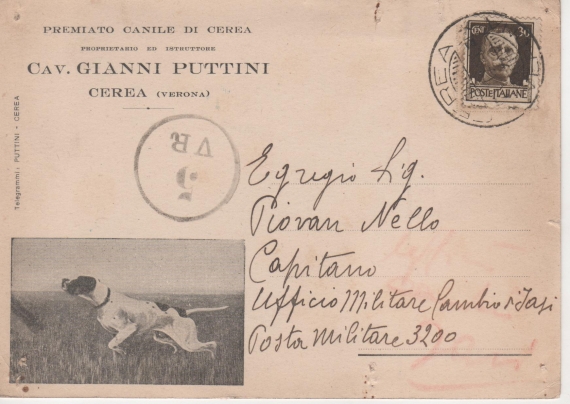 PREMIATO CANILE DI CEREA
PROPRIETARIO ED ISTRUTTORE
CAV. GIANNI PUTTINI
CEREA (VERONA)
Telegrammi: PUTTINI - CEREA
CEREA
POSTE ITALIANE
VR
5
Egregio Sig.
Piovan Nello
Capitano
Ufficio Militare Cambio
Posta Militare 3200